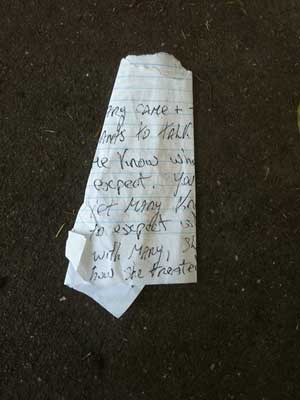 ARY CAME +
ANTS to talk
me know wh
expect. You
let MARY kn
to expect
with MARY, S
how she treate